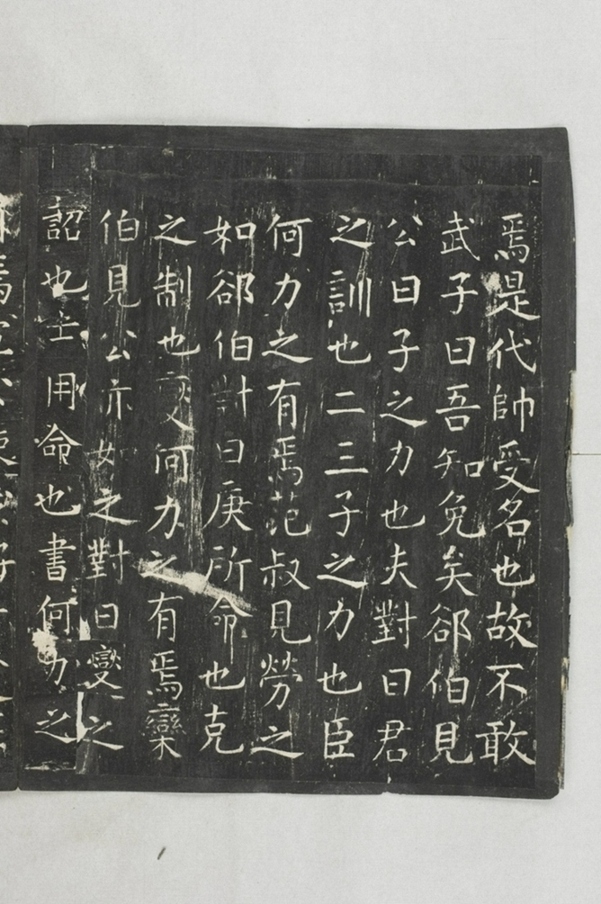 焉是代帥受名也故不敢
武子曰吾知免矣郤伯見
公曰子之力也夫對曰君
之訓也二三子之力也臣
何力之有焉范叔見勞之
如郤伯對曰庚所命也克
之制也燮何力之有焉欒
伯見公亦如之對曰燮之
詔也士用命也書何力之